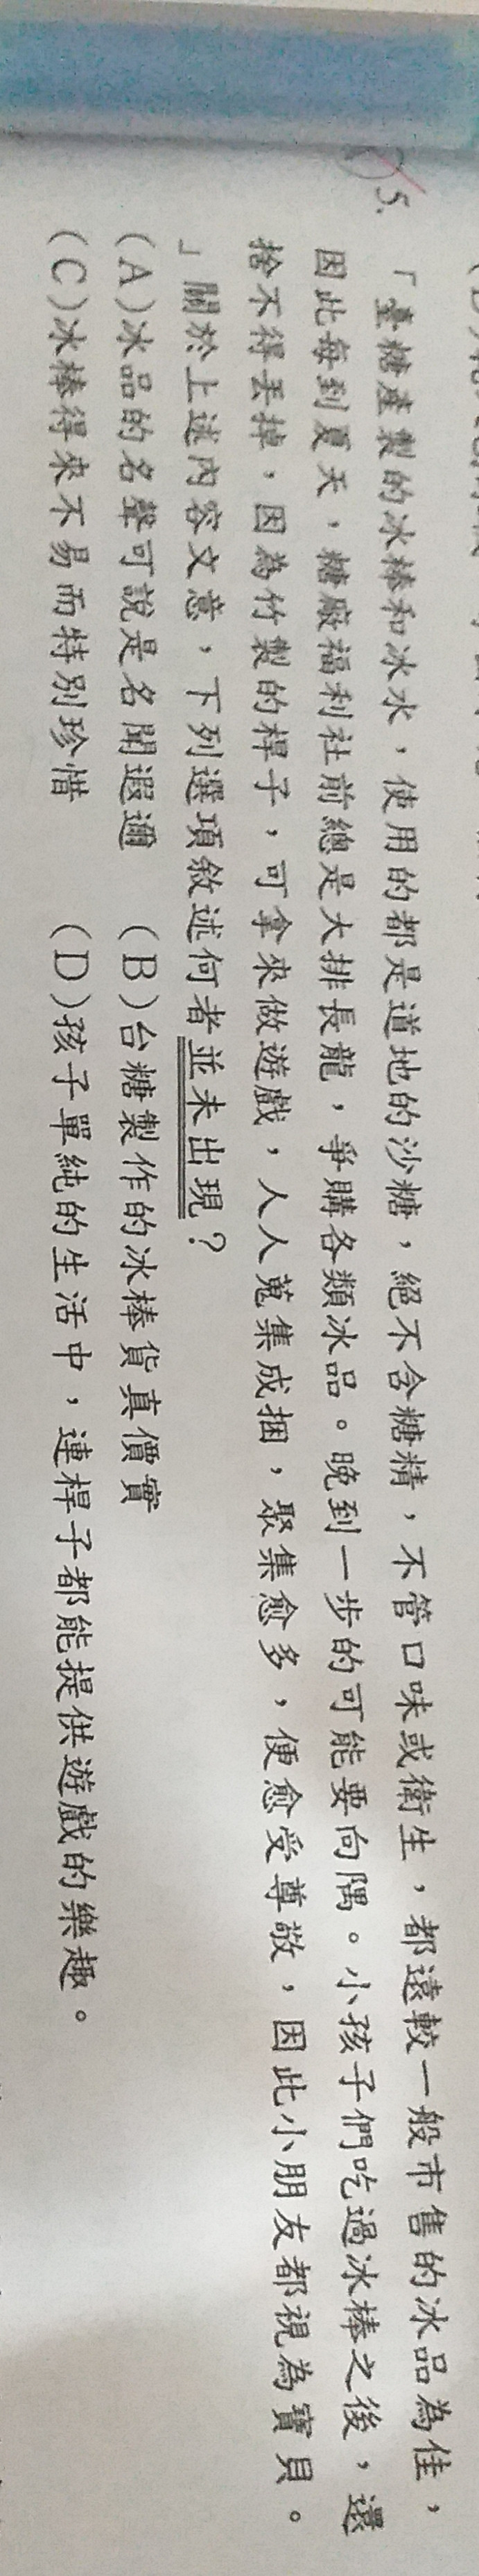 5.「臺糖產製的冰棒和冰水，使用的都是道地的沙糖，絕不含糖精，不管口味或衛生，都遠較一般市售的冰品為佳，
因此每到夏天，糖廠福利社前總是大排長龍，爭購各類冰品。晚到一步的可能要向隅。小孩子們吃過冰棒之後，還
捨不得丟掉，因為竹製的桿子，可拿來做遊戲，人人蒐集成捆，聚集愈多，便愈受尊敬，因此小朋友都視為寶貝。
」關於上述內容文意，下列選項敘述何者並未出現？
(A)冰品的名聲可說是名聞遐邇 (B)台糖製作的冰棒貨真價實
(C)冰棒得來不易而特別珍惜 (D)孩子單純的生活中，連桿子都能提供遊戲的樂趣。